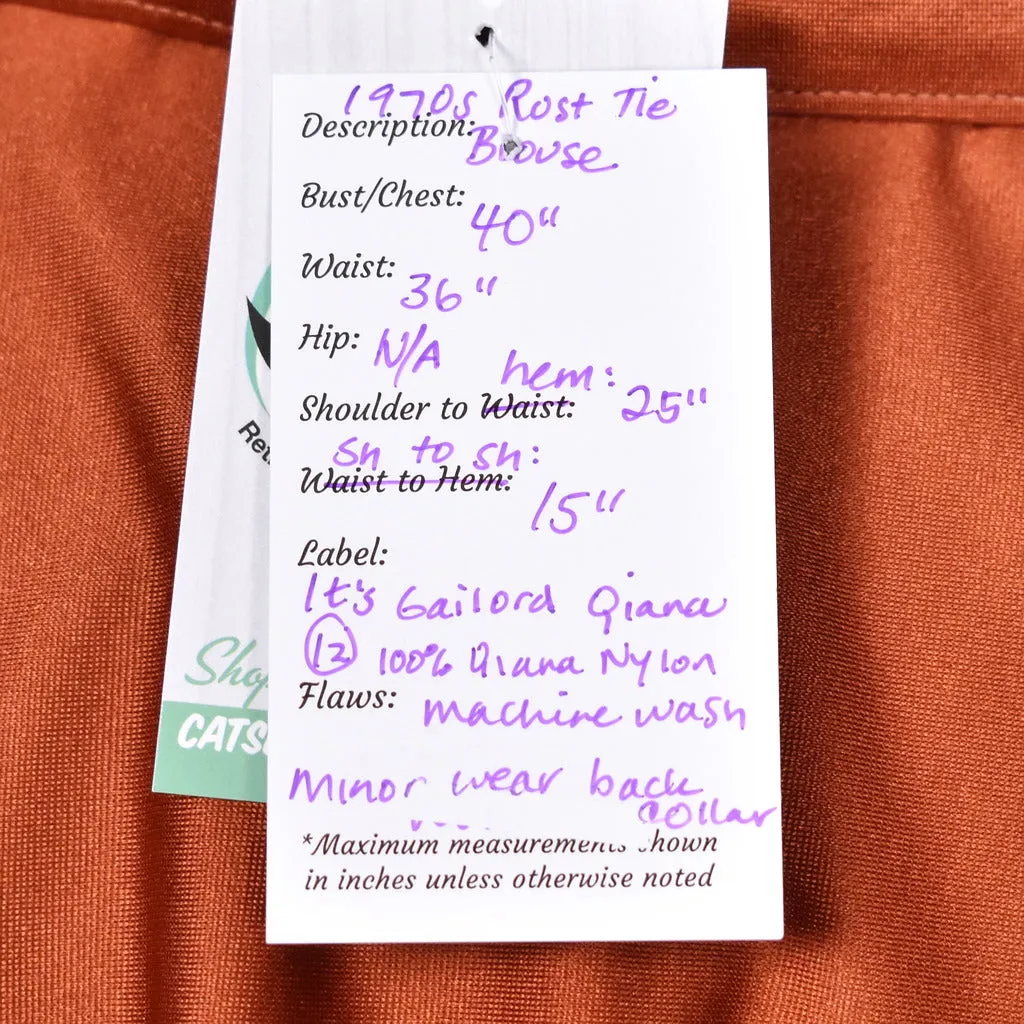 1970s Rust Tie
Description: Blouse
Bust/Chest: 40"
Waist: 36"
Hip: N/A
hem:
Shoulder to Waist: 25"
sh to sh:
Waist to Hem: 15"
Label:
It's Gailord Qiana
12 100% Qiana Nylon
Flaws: machine wash
Minor wear back
collar
*Maximum measurements shown
in inches unless otherwise noted
Ret
Shop
CATS